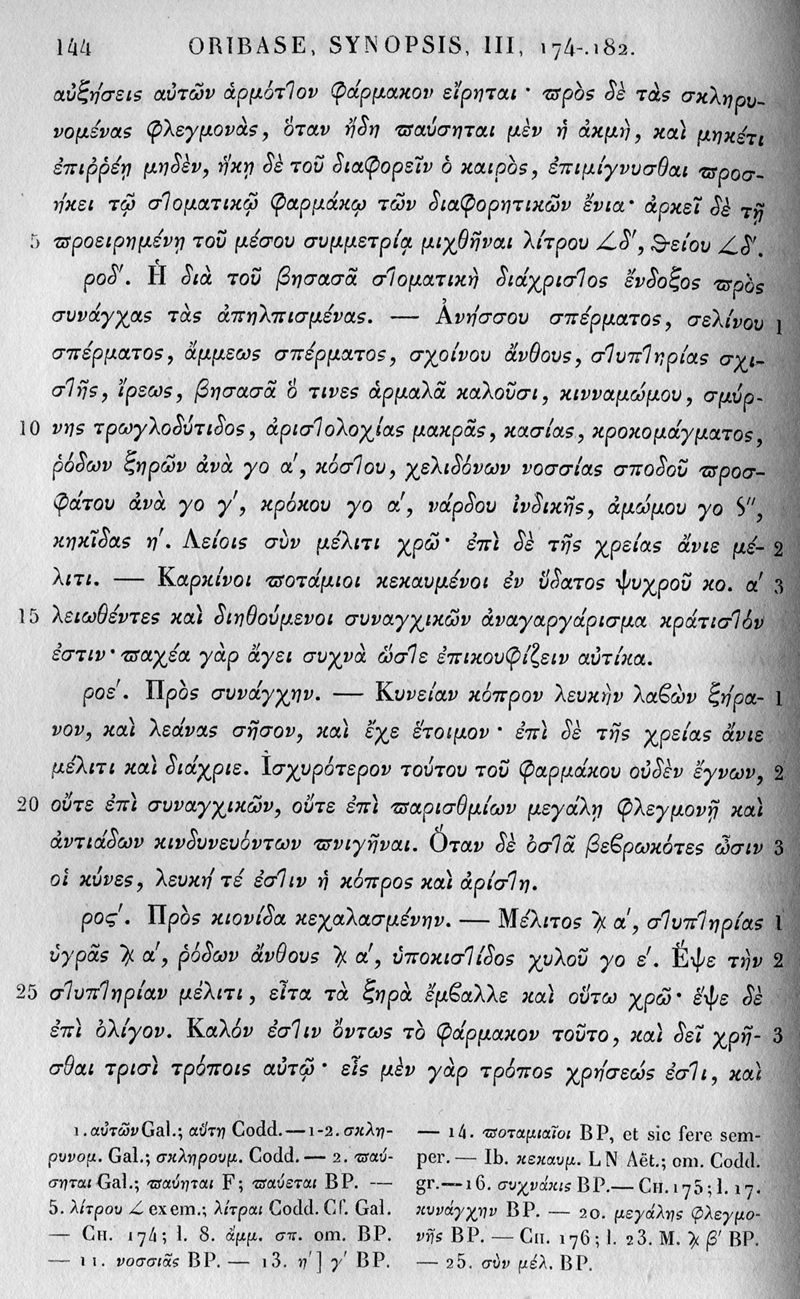 144 ORIBASE, SYNOPSIS, III, 174-182.
αὐξήσεις αὐτῶν ἁρμότ7ον φάρμακον εἴρηται · πρὸς δὲ τὰς σκληρυ-
νομένας φλεγμονὰς, ὅταν ἤδη παύσηται μὲν ἡ ἀκμὴ, καὶ μηκέτι
ἐπιῤῥέῃ μηδὲν, ἥκῃ δὲ τοῦ διαφορεῖν ὁ καιρὸς, ἐπιμίγνυσθαι προσ-
ήκει τῷ στοματικῷ φαρμάκῳ τῶν διαφορητικῶν ἔνια· ἀρκεῖ δὲ τῇ
5 προειρημένῃ τοῦ μέσου συμμετρίᾳ μιχθῆναι λίτρου ∠δʹ, θείου ∠δʹ.
ροδʹ. Ἡ διὰ τοῦ βησασᾶ στοματικὴ διάχριστος ἔνδοξος πρὸς
συνάγχας τὰς ἀπηλπισμένας. — Ἀνήσσου σπέρματος, σελίνου 1
σπέρματος, ἄμμεως σπέρματος, σχοίνου ἄνθους, στυπτηρίας σχι-
στῆς, ἴρεως, βησασᾶ ὅ τινες ἁρμαλᾶ καλοῦσι, κινναμώμου, σμύρ-
10 νης τρωγλοδύτιδος, ἀριστολοχίας μακρᾶς, κασίας, κροκομάγματος,
ῥόδων ξηρῶν ἀνὰ γο αʹ, κόστου, χελιδόνων νοσσίας σποδοῦ προσ-
φάτου ἀνὰ γο γʹ, κρόκου γο αʹ, νάρδου ἰνδικῆς, ἀμώμου γο Ϛʺ,
κηκῖδας ηʹ. Λείοις σὺν μέλιτι χρῶ· ἐπὶ δὲ τῆς χρείας ἄνιε μέ- 2
λιτι. — Καρκίνοι ποτάμιοι κεκαυμένοι ἐν ὕδατος ψυχροῦ κο. αʹ 3
15 λειωθέντες καὶ διηθούμενοι συναγχικῶν ἀναγαργάρισμα κράτιστόν
ἐστιν· παχέα γὰρ ἄγει συχνὰ ὥστε ἐπικουφίζειν αὐτίκα.
ροεʹ. Πρὸς συνάγχην. — Κυνείαν κόπρον λευκὴν λαβὼν ξήρα- 1
νον, καὶ λεάνας σῆσον, καὶ ἔχε ἕτοιμον · ἐπὶ δὲ τῆς χρείας ἄνιε
μέλιτι καὶ διάχριε. Ἰσχυρότερον τούτου τοῦ φαρμάκου οὐδὲν ἔγνων, 2
20 οὔτε ἐπὶ συναγχικῶν, οὔτε ἐπὶ παρισθμίων μεγάλῃ φλεγμονῇ καὶ
ἀντιάδων κινδυνευόντων πνιγῆναι. Ὅταν δὲ ὀστᾶ βεβρωκότες ὦσιν 3
οἱ κύνες, λευκή τέ ἐστιν ἡ κόπρος καὶ ἀρίστη.
ροϛʹ. Πρὸς κιονίδα κεχαλασμένην. — Μέλιτος Ⲭ αʹ, στυπτηρίας 1
ὑγρᾶς Ⲭ αʹ, ῥόδων ἄνθους Ⲭ αʹ, ὑποκιστίδος χυλοῦ γο εʹ. Ἕψε τὴν 2
25 στυπτηρίαν μέλιτι, εἶτα τὰ ξηρὰ ἔμβαλλε καὶ οὕτω χρῶ· ἕψε δὲ
ἐπὶ ὀλίγον. Καλόν ἐστιν ὄντως τὸ φάρμακον τοῦτο, καὶ δεῖ χρῆ- 3
σθαι τρισὶ τρόποις αὐτῷ · εἷς μὲν γὰρ τρόπος χρήσεώς ἐστι, καὶ
1. αὐτῶν Gal.; αὕτη Codd. — 1-2. σκλη-
ρυνομ. Gal.; σκληρουμ. Codd. — 2. παύ-
σηται Gal.; παύηται F; παύεται BP. —
5. λίτρου ∠ ex em.; λίτραι Codd. Cf. Gal.
— CH. 174; l. 8. ἄμμ. σπ. om. BP.
— 11. νοσσιᾶς BP. — 13. ηʹ] γʹ BP.
— 14. ποταμιαῖοι BP, et sic fere sem-
per. — Ib. κεκαυμ. LN Aët.; om. Codd.
gr. — 16. συχνάκις BP. — CH. 175; l. 17.
κυνάγχην BP. — 20. μεγάλης φλεγμο-
νῆς BP. — CH. 176; l. 23. Μ. Ⲭ βʹ BP.
— 25. σὺν μέλ. BP.